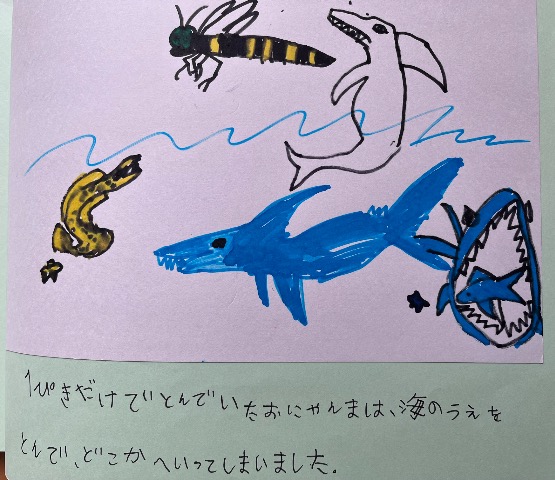 1ぴきだけでとんでいたおにやんまは、海のうえを
とんで、どこかへいってしまいました。